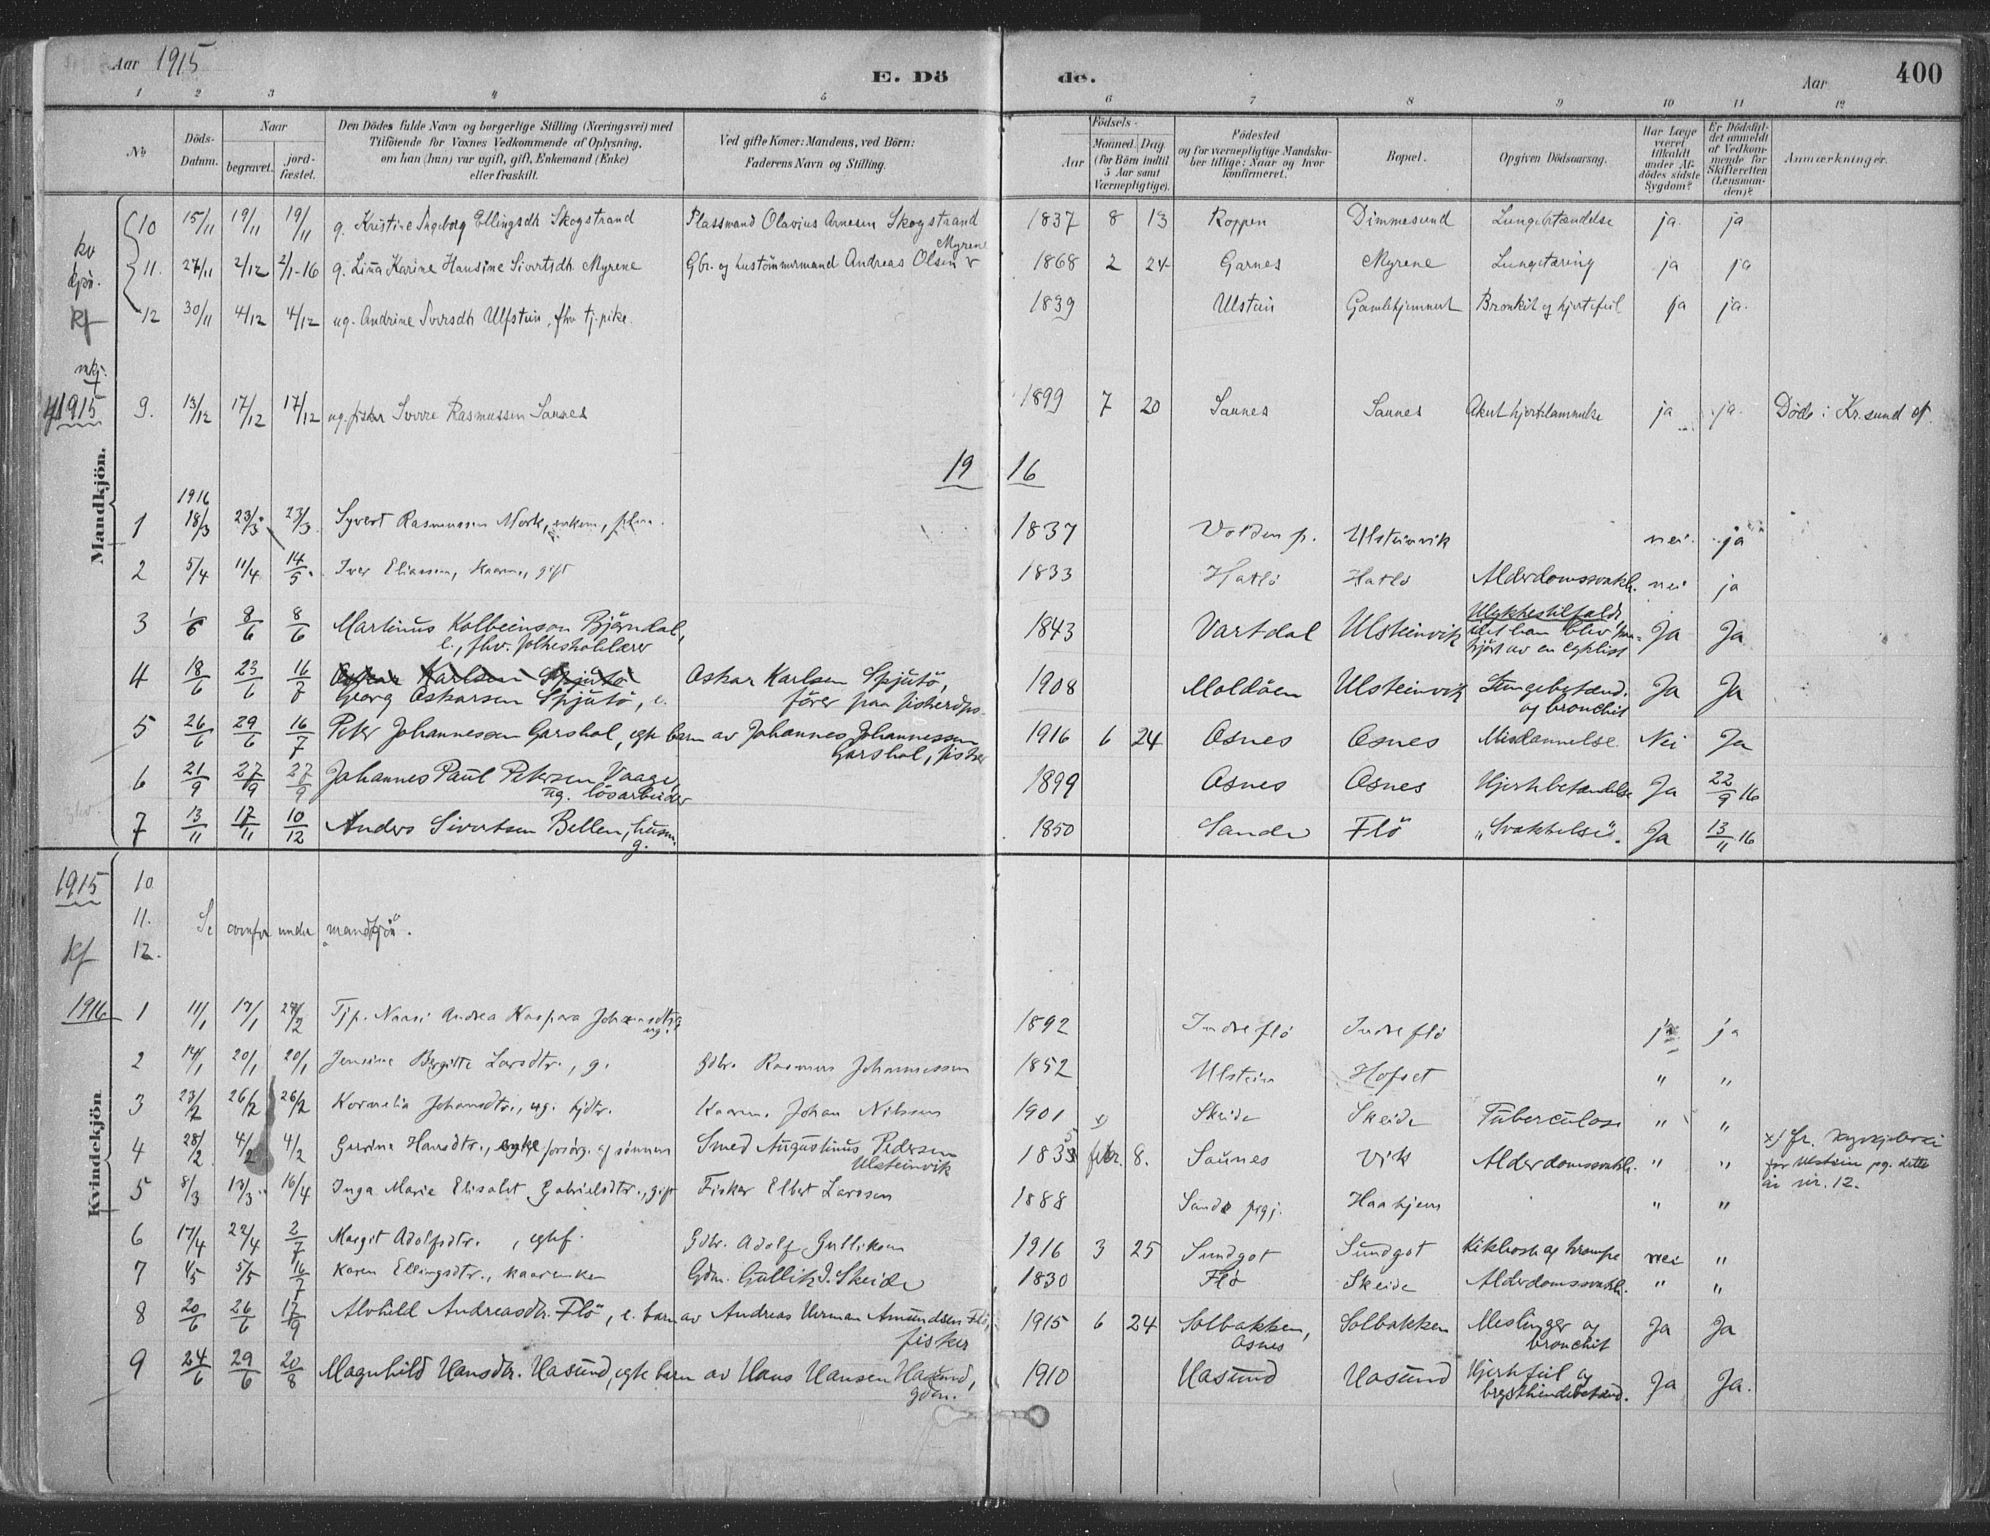 Aar 1915
E. Dö de.
Aar
400
1 2 3 4 5 6 7 8 9 10 11 12
No
Döds-Datum.
Naar
begravet.
jord-fæstet.
Den Dödes fulde Navn og borgerlige Stilling (Næringsvei) med
Tilföiende for Voxnes Vedkommende af Oplysning,
om han (hun) var ugift, gift, Enkemand (Enke)
eller fraskilt.
Ved gifte Koner: Mandens, ved Börn:
Faderens Navn og Stilling.
Födsels-
Aar
Maaned. Dag.
(for Börn indtil
5 Aar samt
Værnepligtige).
Födested
og for værnepligtige Mandska-
ber tillige: Naar og hvor
konfirmeret.
Bopæl.
Opgiven Dödsaarsag.
Har Læge
været
tilkaldt
under Af-
dödes sidste
Sygdom?
Er Dödsfal-
det anmeldt
af Vedkom-
mende for
Skifteretten
(Lensman-
den)?
Anmærkninger.
kv
kjön.
kf
10 15/11 19/11 19/11 g. Kristine Ingeborg Ellingsdh Skogstrand Plassmand Olavius Arnesen Skogstrand 1837 8 13 Roppen Dimmesund Lungebetændelse ja ja
11. 27/11 2/12 2/1-16 g. Lina Karine Hansine Sivertsdh Myrene Gbr. og hustömmermand Andreas Olsen Myrene 1868 2 24 Garnes Myrene Lungetæring ja ja
12 30/11 4/12 4/12 ug. Andrine Iversdh Ulfstein, fhv tj.pike. 1839 Ulstein Gamlehjemmet Bronkit og hjertefeil ja ja.
mkj.
1915 9. 13/12 17/12 17/12 ug. fisker Sverre Rasmussen Saunes 1899 7 20 Saunes Saunes Akut hjertelammelse ja ja. Döde i Kr.sund
19 16
Mandkjön.
1916
1 18/3 23/3 23/3 Syvert Rasmussen Mork, enkem., 1837 Volden p. Ulsteinvik nei ja
2 5/4 11/4 14/5 Iver Eliassen, kaarm., gift 1833 Hatlö Hatlö Alderdomssvakh. nei ja
3 1/6 8/6 8/6 Martinus Kolbeinson Bjørndal, 1843 Vartdal Ulsteinvik Ulykkestilfælde, Ja Ja
e., fhv. folkeskolelærer idet han blev paa-
kjørt av en cyklist
4 18/6 23/6 16/7 Oskar Karlsen Spjutö Oskar Karlsen Spjutö, 1908 Moldöen Ulsteinvik Lungebetænd. Ja Ja
Georg Oskarsen Spjutö, e. förer paa fiskedps. og bronchit
5 26/6 29/6 16/7 Peter Johannessen Garshol, egte barn av Johannes Johannessen 1916 6 24 Osnes Osnes Misdannelse. Nei Ja
Garshol, fisker
6 21/9 27/9 27/9 Johannes Paul Petersen Vaage, 1899 Osnes Osnes Hjertebetændelse Ja 22/9 16
ug. lösarbeider
7 13/11 17/11 10/12 Anders Sivertsen Bellen, husm. 1850 Sande Flö "Svakhelse". Ja 13/11 16
g.
1915 10.
11. Se ovenfor under "mandkjön".
kf 12.
Kvindekjön
1916 1 11/1 17/1 27/2 Tjp. Naasi Andrea Kaspara Johansdtr 1892 Indre flö Indre flö ja ja
ug.
2 14/1 20/1 20/1 Jensine Bergitte Larsdtr., g. Gdbr. Rasmus Johannessen 1852 Ulstein Hofset " "
3 23/2 26/2 26/2 Kornelia Johansdtr., ug. tjdtr. Kaarm. Johan Nilssen 1901 x) Skeide Skeide Tuberculose " "
4 28/2 4/2 4/2 Gurine Hansdtr., enke forsörg. af sönnen Smed Augustinus Pedersen 1835 febr. 8. Saunes Vik Alderdomssvakh. " " x) Jfr. kyrkjeboki
Ulsteinvik for Ulstein pg. dette
5 8/3 13/3 16/4 Inga Marie Elisabet Gabrielsdtr., gift Fisker Elbert Larssen 1888 Sande prgj. Haahjem " " år nr. 12.
6 17/4 22/4 2/7 Margit Adolfsdtr., egtef. Gdbr. Adolf Gulliksen 1916 3 25 Sundgot Sundgot Kikhoste og krampe nei "
7 1/5 5/5 16/7 Karen Ellingsdtr., kaarenke Gdm. Gullik J. Skeide 1830 Flö Skeide Alderdomssvakh. " "
8 20/6 26/6 17/9 Alvhild Andreasdtr. Flö, e. barn av Andreas Herman Amundsen Flö, 1915 6 24 Solbakken, Solbakken Meslinger og Ja Ja
fisker Osnes bronchit
9 24/6 29/6 20/8 Magnhild Hansdtr. Hasund, egte barn av Hans Hansen Hasund, 1910 Hasund Hasund Hjertefeil og Ja Ja.
gdm. brysthindebetænd.